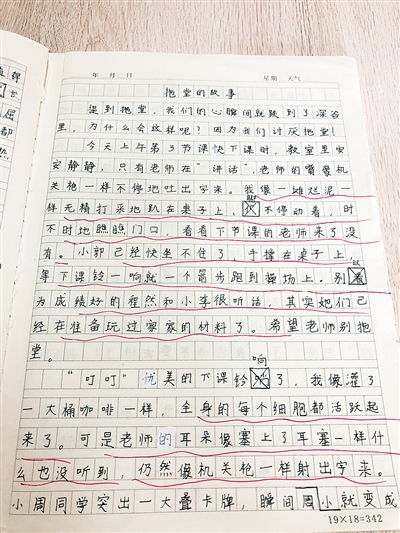 年 月 日 星期 天气
拖堂的故事
提到拖堂，我们的心瞬间就跌到了深谷
里，为什么会这样呢？因为我们讨厌拖堂！
今天上午第3节课快下课时，教室里安
安静静，只有老师在"讲话"，老师的嘴像机
关枪一样不停地吐出字来。我像一堆烂泥一
样无精打采地趴在桌子上，眼不停动着，时
不时地瞧瞧门口，看看下节课的老师来了没
有。小郭已经快坐不住了，手撑在桌子上，
等下课铃一响就一个箭步跑到操场上。别以
为成绩好的程然和小李很听话，其实她们已
经在准备玩过家家的材料了。希望老师别拖
堂。
"叮叮"优美的下课铃响了，我像灌了
一大桶咖啡一样，全身的每个细胞都活跃起
来了。可是老师的耳朵像塞上了耳塞一样什
么也没听到，仍然像机关枪一样射出字来。
小周同学突出一大叠卡牌，瞬间周小就变成
19×18=342
课
屈
都
热